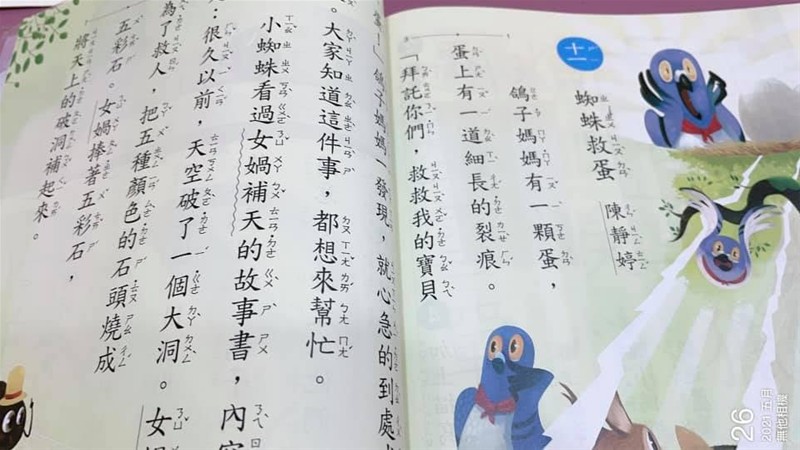 十一
蜘蛛救蛋
陳靜婷
鴿子媽媽有一顆蛋，
蛋上有一道細長的裂痕。
「拜託你們，救救我的寶貝
！」鴿子媽媽一發現，就心急的到處
大家知道這件事，都想來幫忙。
小蜘蛛看過女媧補天的故事書，內
：很久以前，天空破了一個大洞。女
為了救人，把五種顏色的石頭燒成
五彩石。女媧捧著五彩石，
將天上的破洞補起來。
26
2021 五月
無他相機